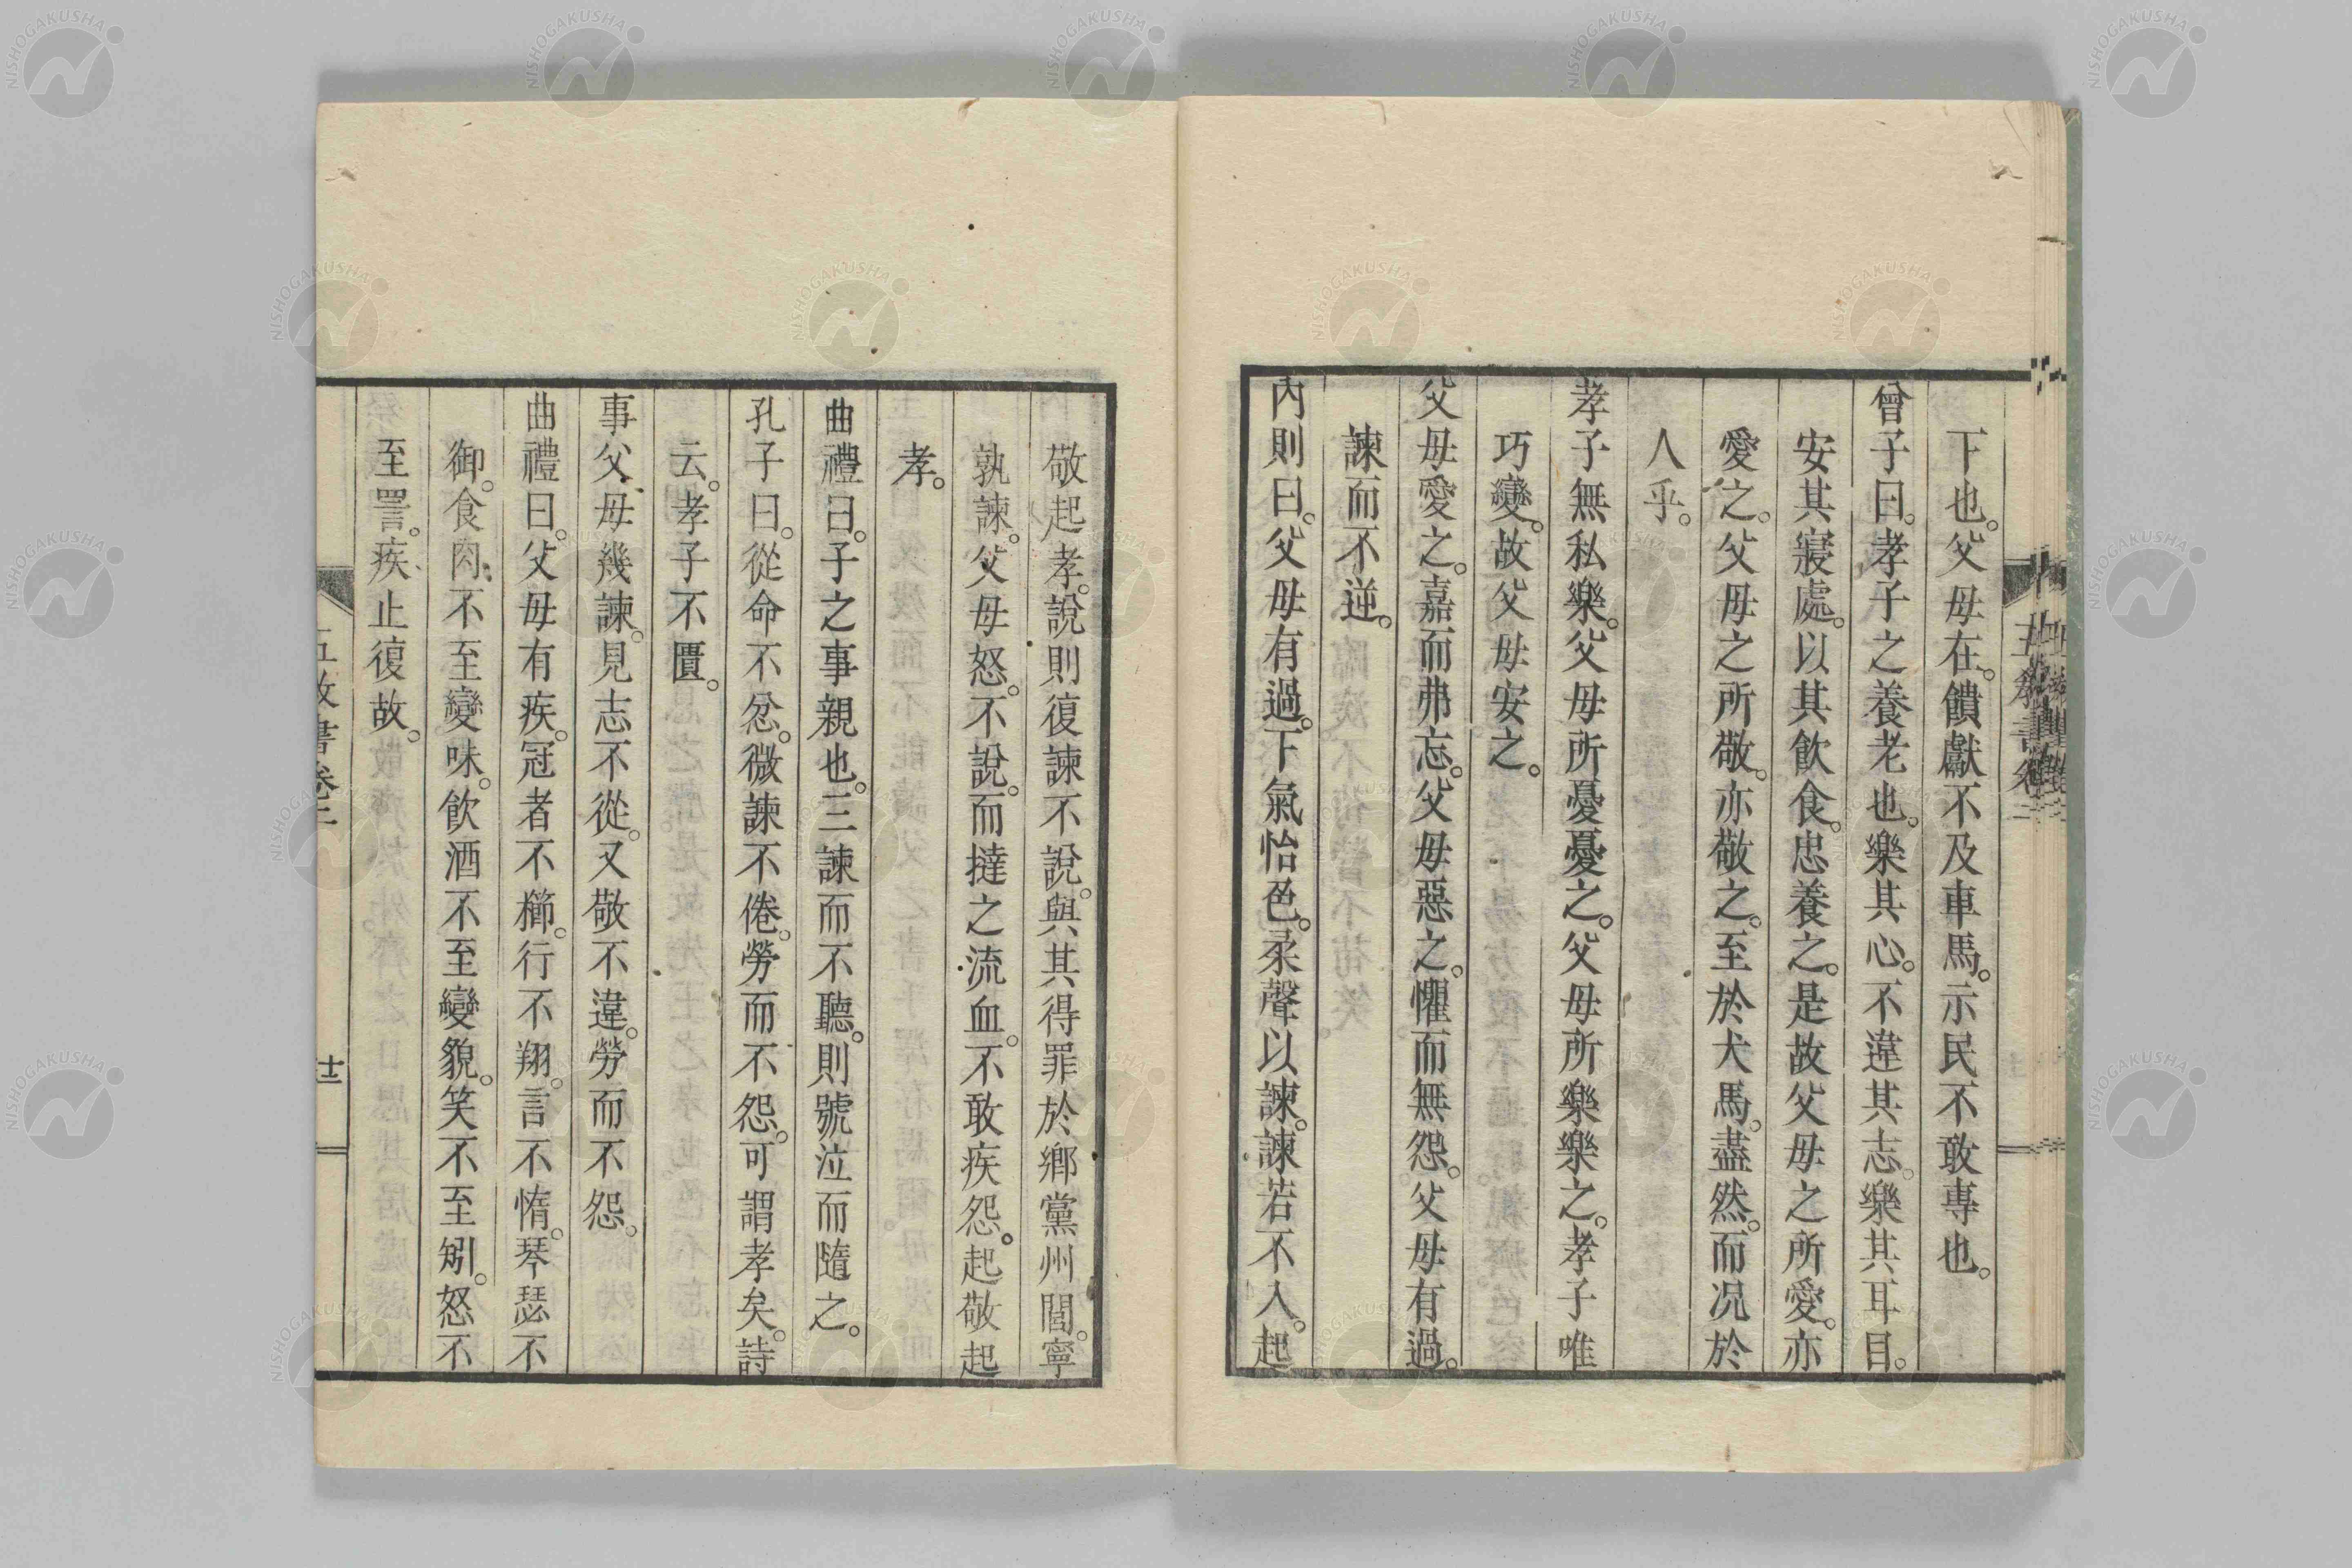 下也。父母在。饋獻不及車馬。示民不敢專也。
曾子曰。孝子之養老也。樂其心。不違其志。樂其耳目。
安其寢處。以其飲食。忠養之。是故父母之所愛。亦
愛之。父母之所敬。亦敬之。至於犬馬。盡然。而況於
人乎。
孝子無私樂。父母所憂憂之。父母所樂樂之。孝子唯
巧變。故父母安之。
父母愛之。嘉而弗忘。父母惡之。懼而無怨。父母有過。
諫而不逆。
內則曰。父母有過。下氣怡色。柔聲以諫。諫若不入。起
敬起孝。說則復諫不說。與其得罪於鄉黨州閭。寧
孰諫。父母怒。不說。而撻之流血。不敢疾怨。起敬起
孝。
曲禮曰。子之事親也。三諫而不聽。則號泣而隨之。
孔子曰。從命不忿。微諫不倦。勞而不怨。可謂孝矣。詩
云。孝子不匱。
事父母幾諫。見志不從。又敬不違。勞而不怨。
曲禮曰。父母有疾。冠者不櫛。行不翔。言不惰。琴瑟不
御。食肉不至變味。飲酒不至變貌。笑不至矧。怒不
至詈。疾止復故。
五教書卷二
十二
NISHOGAKUSHA